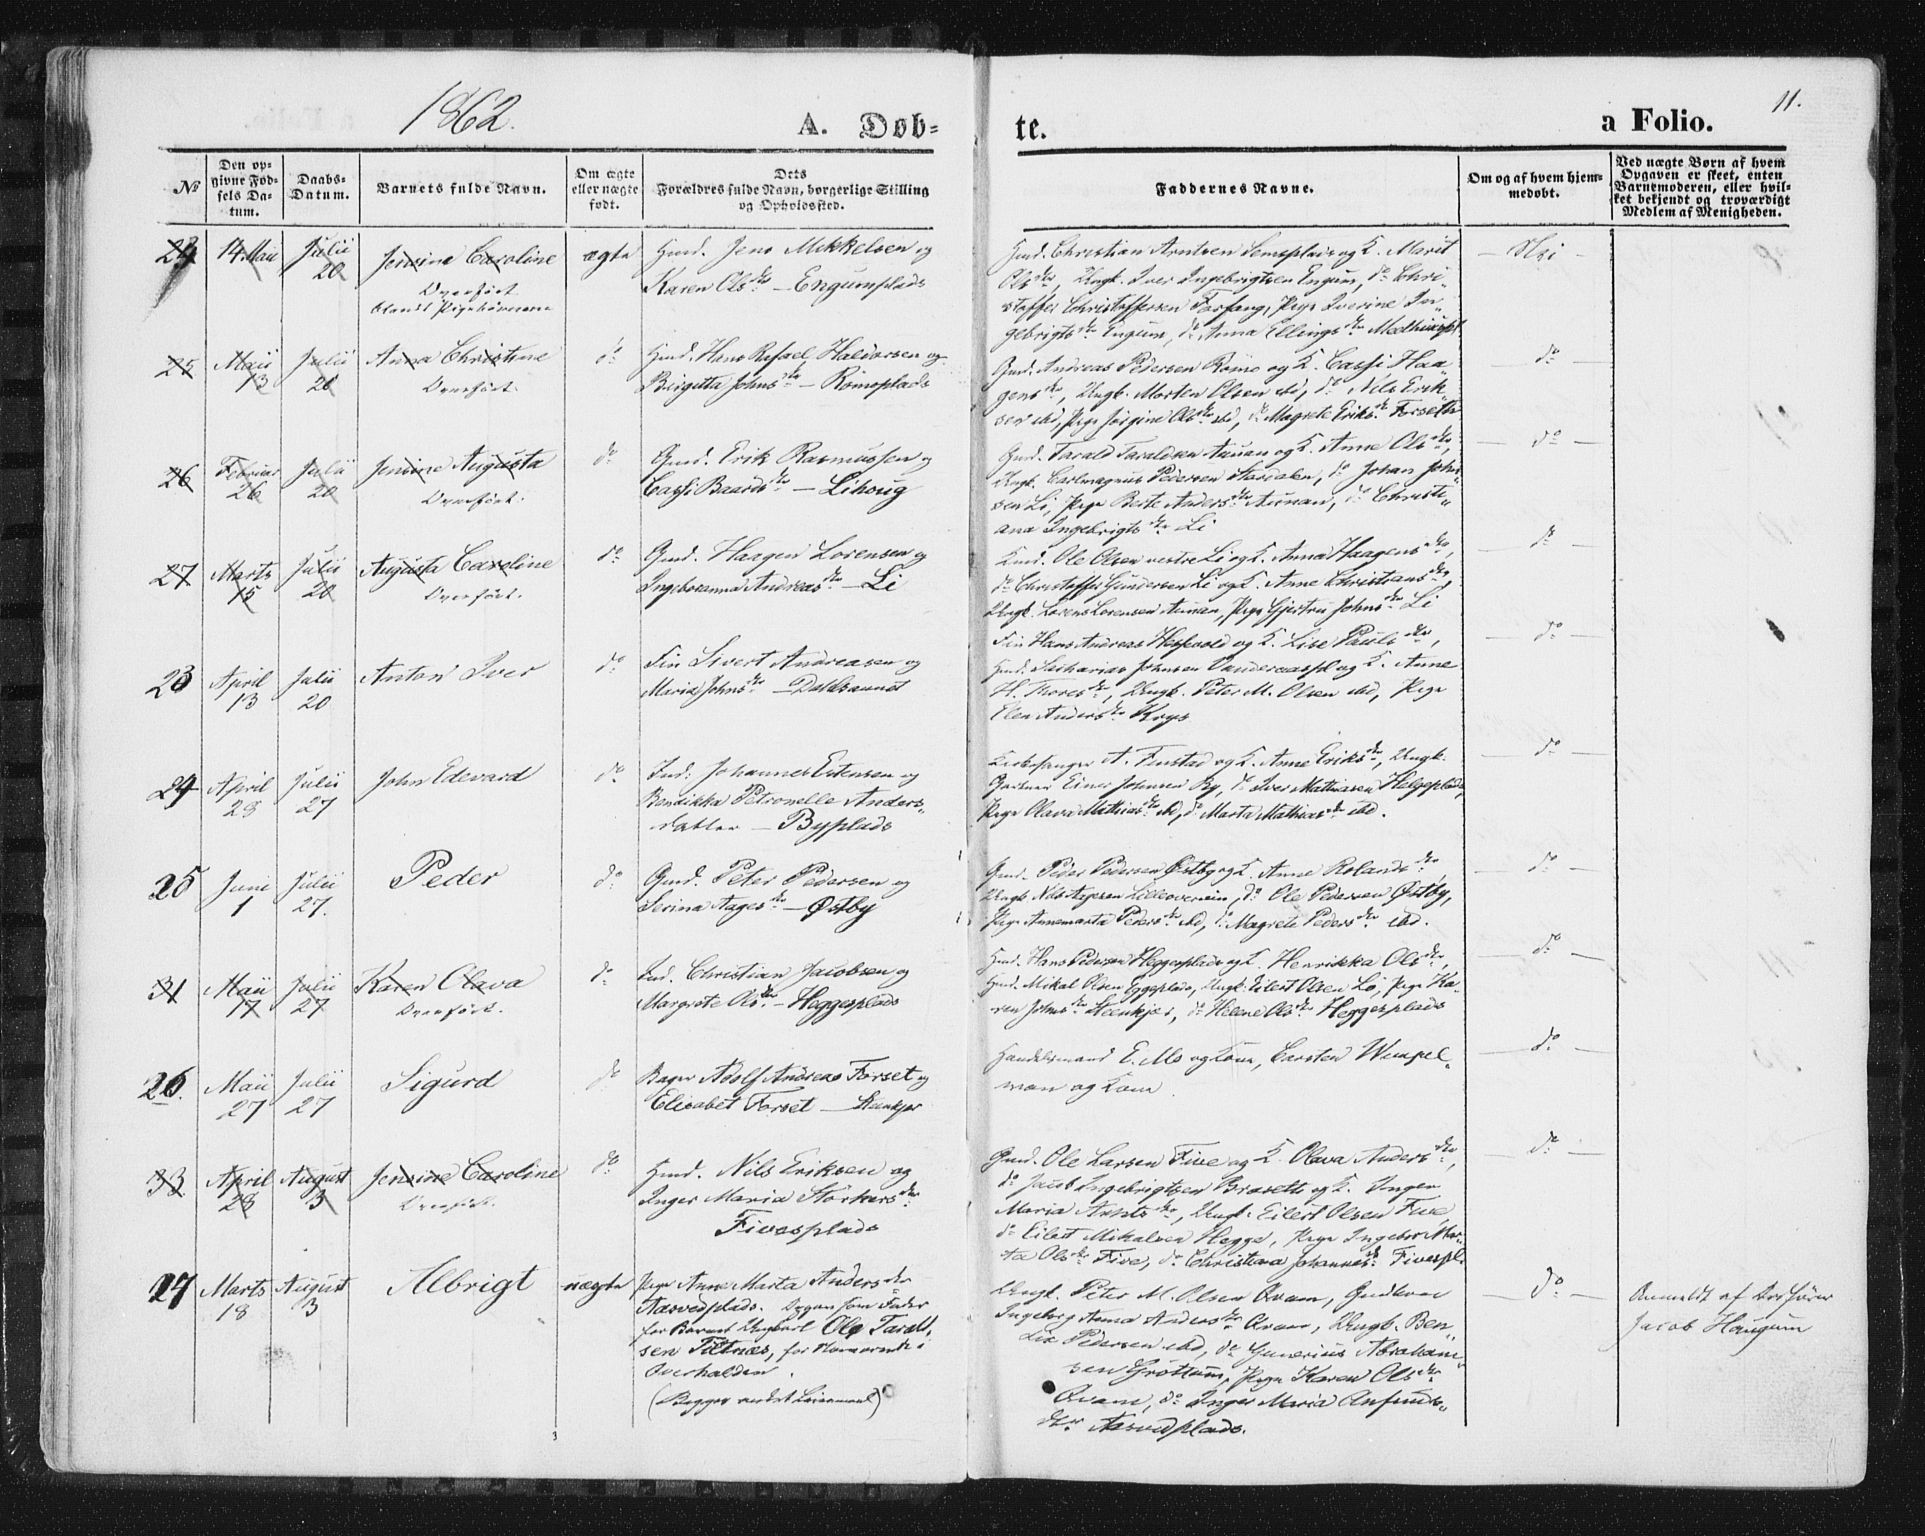 1862.
A. Døb-
te.
a Folio.
11.
No
Den op-
givne Fød-
sels Da-
tum.
Daabs-
Datum.
Barnets fulde Navn.
Om ægte
eller uægte
født.
Dets
Forældres fulde Navn, borgerlige Stilling
og Opholdssted.
Faddernes Navne.
Om og af hvem hjem-
medøbt.
Ved uægte Børn af hvem
Opgaven er skeet, enten
Barnemoderen, eller hvil-
ket bekjendt og troværdigt
Medlem af Menigheden.
24
14 Mai
Julii
20
Jensine Caroline
Overført
blandt Pigebørnene
ægte
Huusmd. Jens Mikkelsen og
Karen Olsdtr – Engumplads
Christian Arntsen Semsplads og K. Marit
Olsdtr, Ungk. Iver Ingebrigtsen Engum, do Chri-
stoffer Christoffersen Forfang, Pige Iverine In-
gebrigtsdtr Engum, do Anna Ellingsdtr
– Nei
25
Maii
13
Julii
20
Anna Christine
Overført.
do
Hans Rafael Haldorsen og
Birgitta Johnsdtr – Römoplads
Andreas Pedersen Römo og K. Haa-
gensdtr, Ungk. Morten Olsen ibd, do Nils Erik-
sen ibd, Pige Jørgine Olsdtr ibd, do Magrete Eriksdtr Forseth
– do –
26
Februar
26
Julii
20
Jensine Augusta
Overført.
do
Gmd. Erik Rasmussen og
Baardsdtr – Lihoug
Gmd. Tarald Taraldsen Aunan og K. Anne Olsdtr,
Ungk. Carlmagnus Pedersen, do Johan John-
sen Li, Pige Andersdtr Aunan, do Christi-
ana Ingebrigtsdtr Li
– do –
27
Marts
15
Julii
20
Augusta Caroline
Overført.
do
Gmd. Haagen Lorensen og
Andreasdtr – Li
Ole Olsen vestre Li og K. Anna Haagensdtr,
do Christoffer Gundersen Li og K. Anne Christiansdtr,
Ungk. Lorens Lorensen Aunan, Pige Gjertru Johnsdtr Li
– do –
23
April
13
Julii
20
Anton Iver
do
Sivert Andreasen og
Maria Johnsdtr –
Hans Andreas og K. Lise Paulsdtr,
Sacharias Johnsen og K. Anne
H. Thoresdtr, Ungk. Peter M. Olsen ibd, Pige
Elen Andersdtr
– do –
24
April
28
Julii
27
John Edevard
do
Ind. Johannes Estensen og
Bendikka Petronelle Anders-
datter – Byplads
Kirkesanger A. Finstad og K. Anne Eriksdtr, Ungk.
Gartner Einar Johnsen By, do Iver Mathiasen Helgeplads,
Pige Olava Mathiasdtr ibd, do Marta Mathiasdtr ibd.
– do –
25
Juni
1
Julii
27.
Peder
do
Gmd. Peter Pedersen og
Serina Aagesdtr – Østby
Gmd. Peder Pedersen Østby og K. Anne Rolandsdtr
Ungk. Nils, do Ole Pedersen Østby,
Pige Annemarta Pedersdtr ibd, do Magrete Pedersdtr ibd.
– do –
31
Maii
17
Julii
27
Karen Olava
Overført.
do
Ind. Christian Jacobsen og
Margrete Olsdtr – Heggesplads
Hans Pedersen Heggesplads og K. Henrikka Olsdtr,
Mikal Olsen Eggeplads, Ungk. Eilert Olsen Lø, Pige Ka-
ren Johnsdtr Steenkjer, do Helene Olsdtr Heggesplads
– do –
26.
Maii
27
Julii
27
Sigurd
do
Bager Adolf Andreas Forset og
Elisabet Forset – Steenkjer
Handelsmand E. Mo og Kone, Carsten Wimpel-
man og Kone
– do –
33
April
28
August
3
Jensine Caroline
Overført.
do
Nils Eriksen og
Inger Maria Storkersdtr
Fivesplads
Gmd. Ole Larsen Five og K. Olava Andersdtr,
do Jacob Ingebrigtsen Braseth og K. Inger
Maria Arntsdtr, Ungk. Eilert Olsen Five
do Eilert Mikalsen Hegge, Pige Ingebor Mar-
ta Olsdtr Five, do Christiana Johannesdtr Fivespl.
– do –
27
Marts
18
August
3
Albrigt
uægte
Pige Anne Marta Andersdtr
Aasvedplads. Opgav som Fader
for Barnet Ungkarl Ole Taralt-
sen Tiltnæs, for Nærværende i
Overhalden.
(Begges andet Leiermaal)
Ungk. Peter M. Olsen Qvam,
Ingeborg Anna Andersdtr Qvam, Ungk. Ben-
Pedersen ibd, do Gunerius Abraham-
sen Grøttum, Pige Karen Olsdtr
Qvam, do Inger Maria Anfinds-
dtr Aasvedplads.
– do –
Anmeldt af
Jacob Haugum